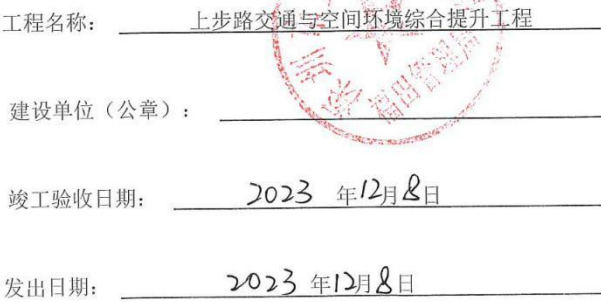 工程名称： 上步路交通与空间环境综合提升工程
建设单位（公章）：
福田管理局
竣工验收日期： 2023 年12月8日
发出日期： 2023 年12月8日